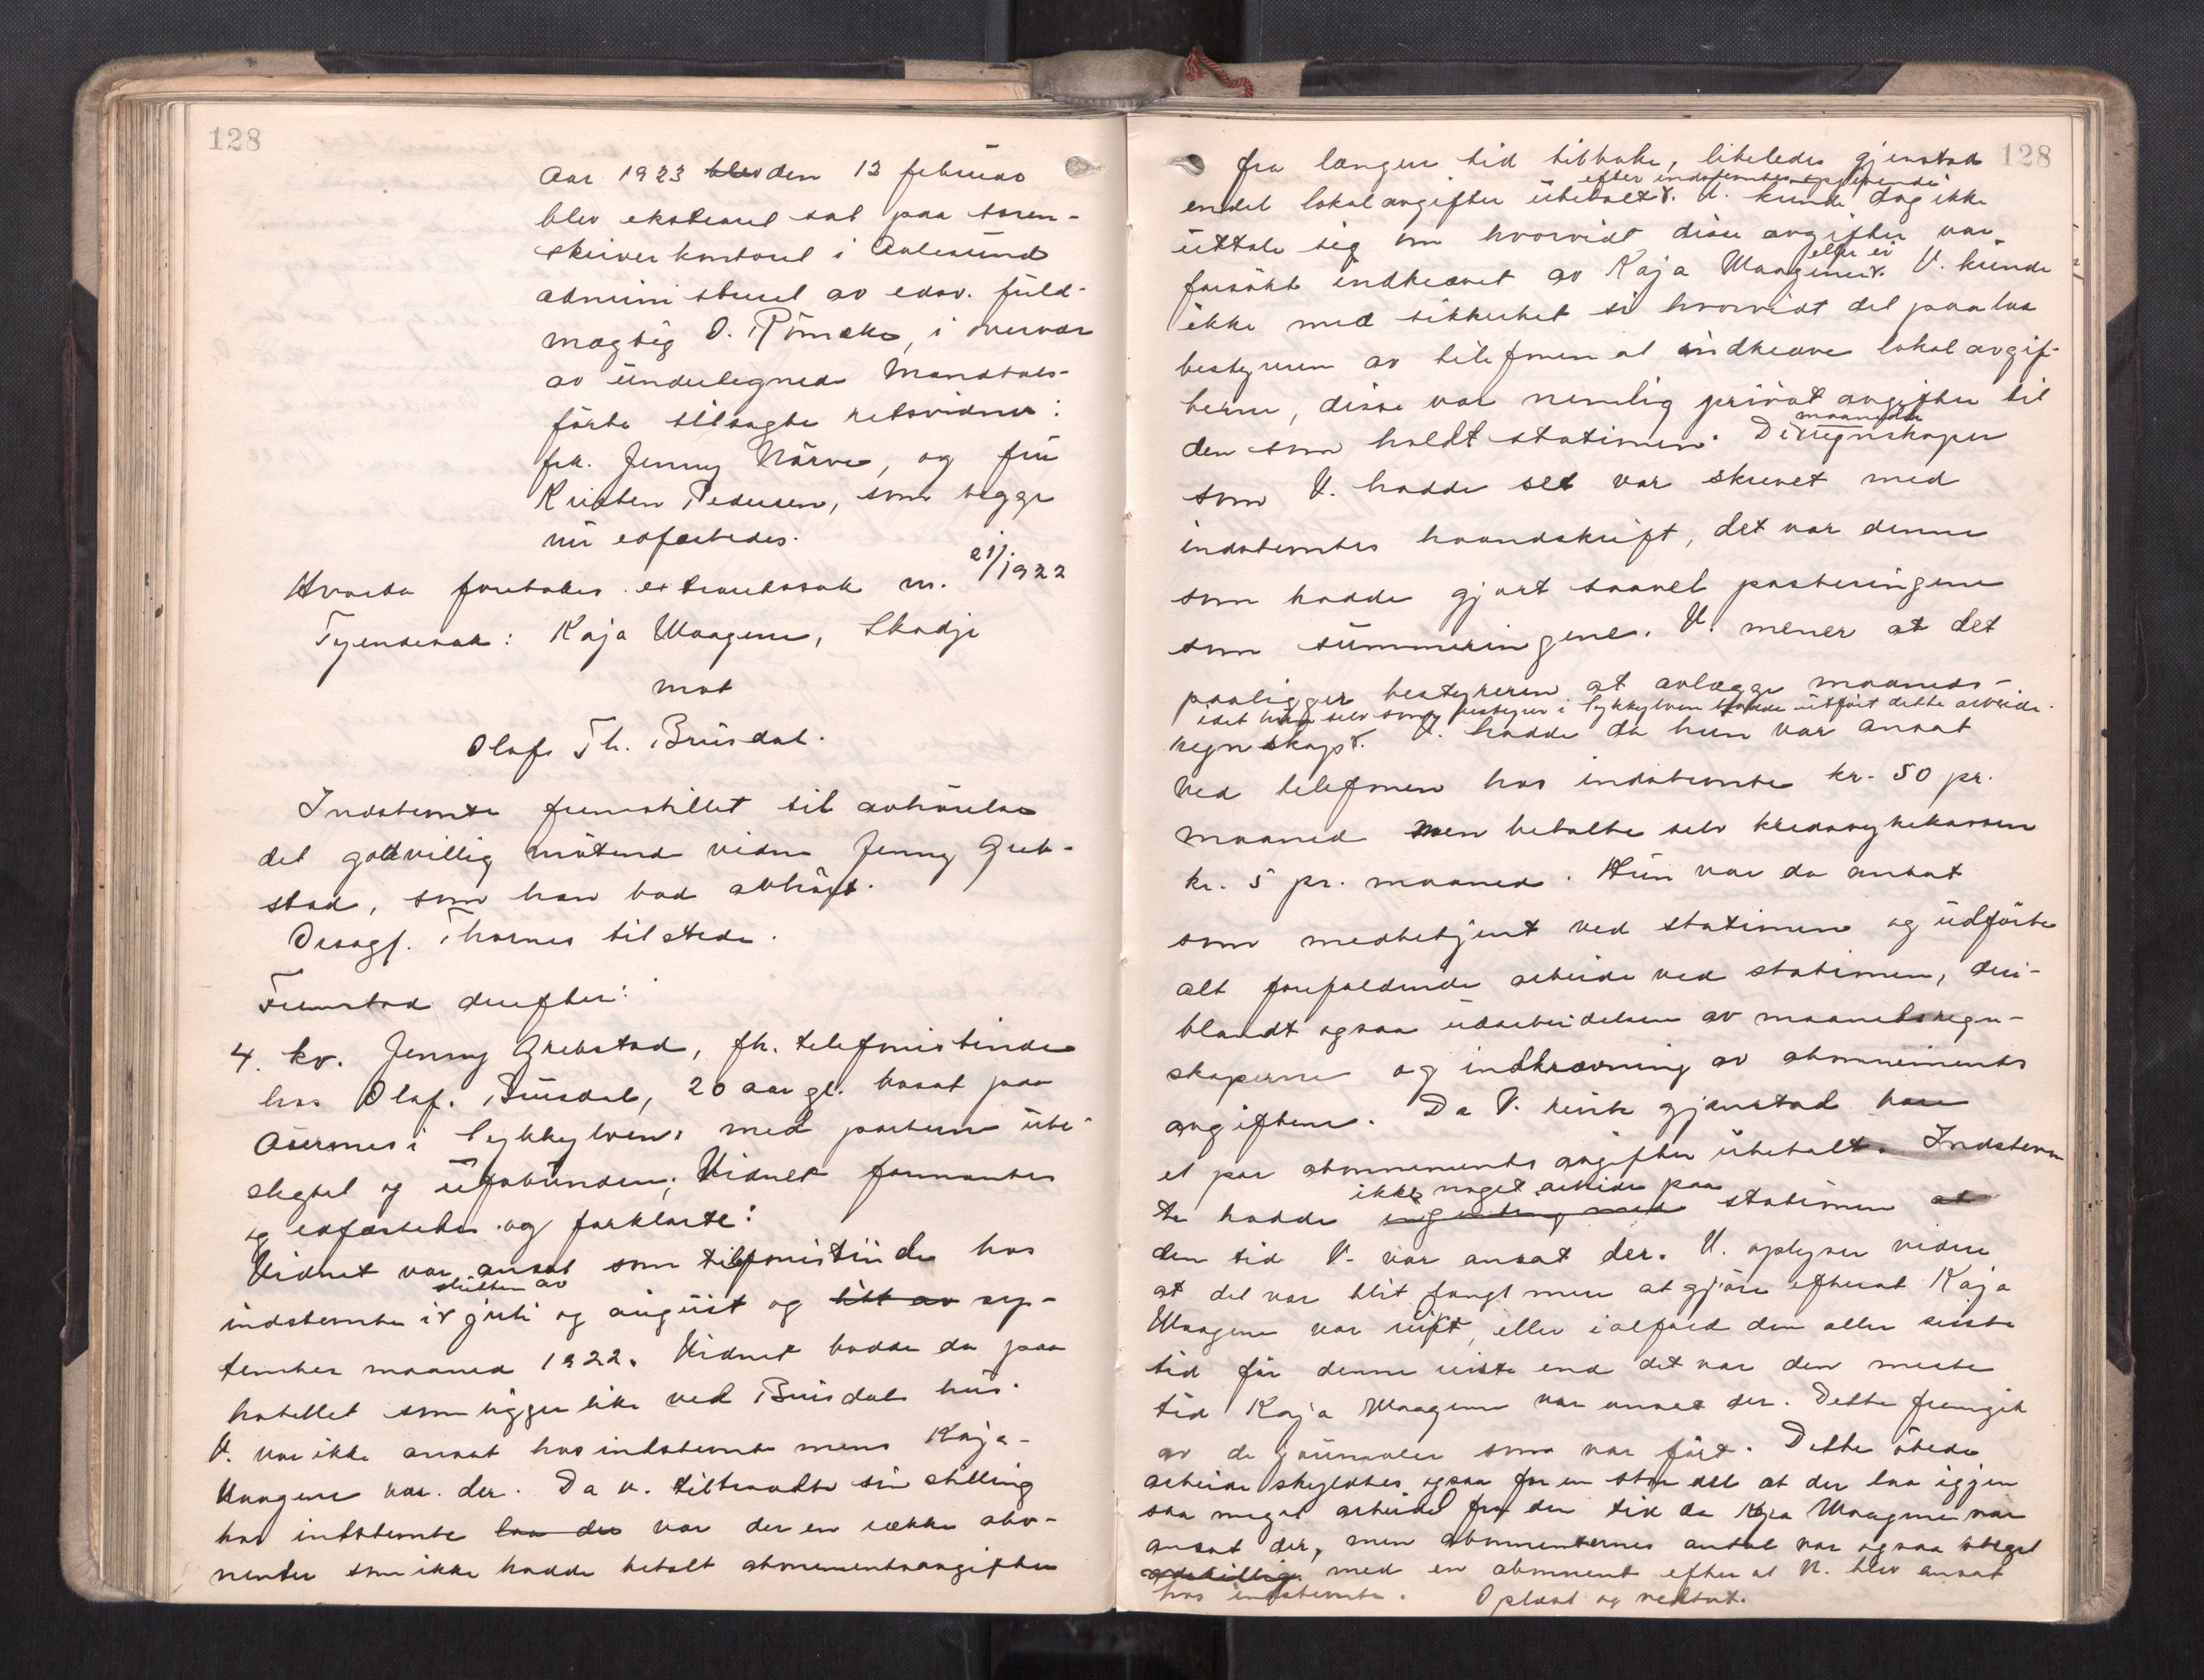 128
Aar 1923 blev den 13 februar
blev ekstraret sat paa soren-
skriverkontoret i Aalesund
administreret av edsv. fuld-
mægtig O. Rømcke, i overvær
av undertegnede Mandtals-
førte tilsagte retsvidner:
frk. Jenny Nørve, og fru
Kristen Pedersen, som begge
nu edfæstedes.
Hvorda foretokes extraretssak nr. 21/1922
Tyendesak: Kaja Waagene, Skodje
mot
Olaf Th. Brusdal.
Indstevnte fremstillet til avhørelse
det godvillig møtende vidne Jenny Greb-
stad, som han bad avhørt.
Ovsagf. Thornes tilstede.
Fremstod derefter:
4. kv. Jenny Grebstad, fh. telefonistinde
hos Olaf. Brusdal, 20 aar gl. bosat paa
Aurenes i Sykkylven, med parterne ube-
slegtet og uforbunden; Vidnet formantes
og edfæstedes og forklarte:
Vidnet var ansat som telefonistinde hos
slutten av
indstevnte i juli og august og litt av sep-
tember maaned 1922. Vidnet bodde da paa
hotellet som ligger like ved Brusdals hus.
V. var ikke ansat hos indstevnte mens Kaja
Waagene var der. Da v. tiltraadte sin stilling
hos indstevnte laa der var der en række abo-
nenter som ikke hadde betalt abonementsavgifter
128
fra længere tid tilbake, likeledes gjenstod
efter indstevntes opgivende
endel lokalavgifter ubetalt. V. kunde dog ikke
uttale sig om hvorvidt disse avgifter var
eller ei
forsøkt indkrævet av Kaja Waagene. V. kunde
ikke med sikkerhet si hvorvidt det paalaa
bestyreren av telefonen at indkræve lokalavgif-
terne, disse var nemlig privat avgifter til
maaneds
den som holdt stationen. De regnskaper
som V. hadde set var skrevet med
indstevntes haandskrift, det var denne
som hadde gjort saavel posteringene
som summeringene. V. mener at det
paaligger bestyreren at avlægge maaneds-
idet hun selv som bestyrer i Sykkylven hadde utført dette arbeide.
regnskap. V. hadde da hun var ansat
ved telefonen hos indstevnte kr. 50 pr.
maaned men betalte selv kredssykekassen
kr. 5 pr. maaned. Hun var da ansat
som medbetjent ved stationen og udførte
alt forefaldende arbeide ved stationen, deri-
blandt ogsaa utarbeidelsen av maanedsregn-
skaperne og indkrævning av abonnements
avgiftene. Da V. reiste gjenstod bare
et par abonnements avgifter ubetalt. Indstevn
ikke noget arbeide paa
te hadde ingenting med stationen at
den tid V. var ansat der. V. oplyser videre
at det var blit langt mere at gjøre efterat Kaja
Waagene var reist, eller ialfald den aller siste
tid før denne reiste end det var den meste
tid Kaja Waagene var ansat der. Dette fremgik
av de journaler som var ført. Dette økede
arbeide skyldtes ogsaa for en stor del at der laa igjen
saa meget arbeide fra den tid da Kaja Waagene var
ansat der, men abonnenternes antal var ogsaa steget
adskillig med en abonnent efter at V. blev ansat
hos indstevnte. Oplæst og vedtat.